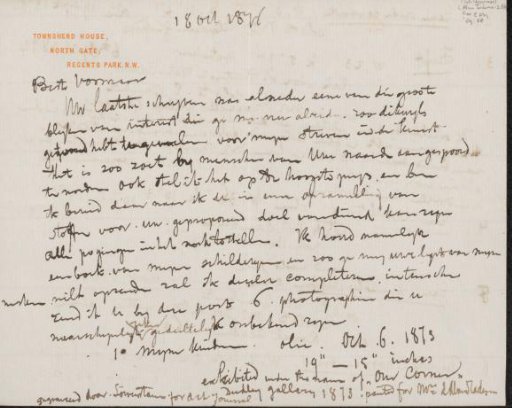 18 Oct 1876
TOWNSHEND HOUSE,
NORTH GATE,
REGENTS PARK. N.W.
Beste Vosmaer
Uw laatste schrijven was alweder eene van die groote
blijken van interest die ge me nu al zoo dikwijls
getoond hebt voor mijn streven in de kunst
Het is zoo zoet by menschen van Uwe waarde aangespoord
te worden ook stel ik het op de hoogste prijs, en ben
ik bereid daar waar ik U in eene verzameling van
stoffen voor uw doel van dienst kan zijn
alle pogingen in het werk te stellen. Ik houd namelijk
een boek van mijne schilderijen en zoo ge mij uwe lijst van mijn
werken wilt opzenden zal ik dezelve completeren, intusschen
zend ik U by deze post 6 photographien die U
waarschijnlijk gedeeltelijk onbekend zijn
1º Mijne kinderen. olie. Oct. 6. 1873
19" — 15" inches
exhibited under the name of "Our Corner"
Dudley gallery 1873. painted for Mrs L Alma Tadema
gegraveerd door for Art Journal